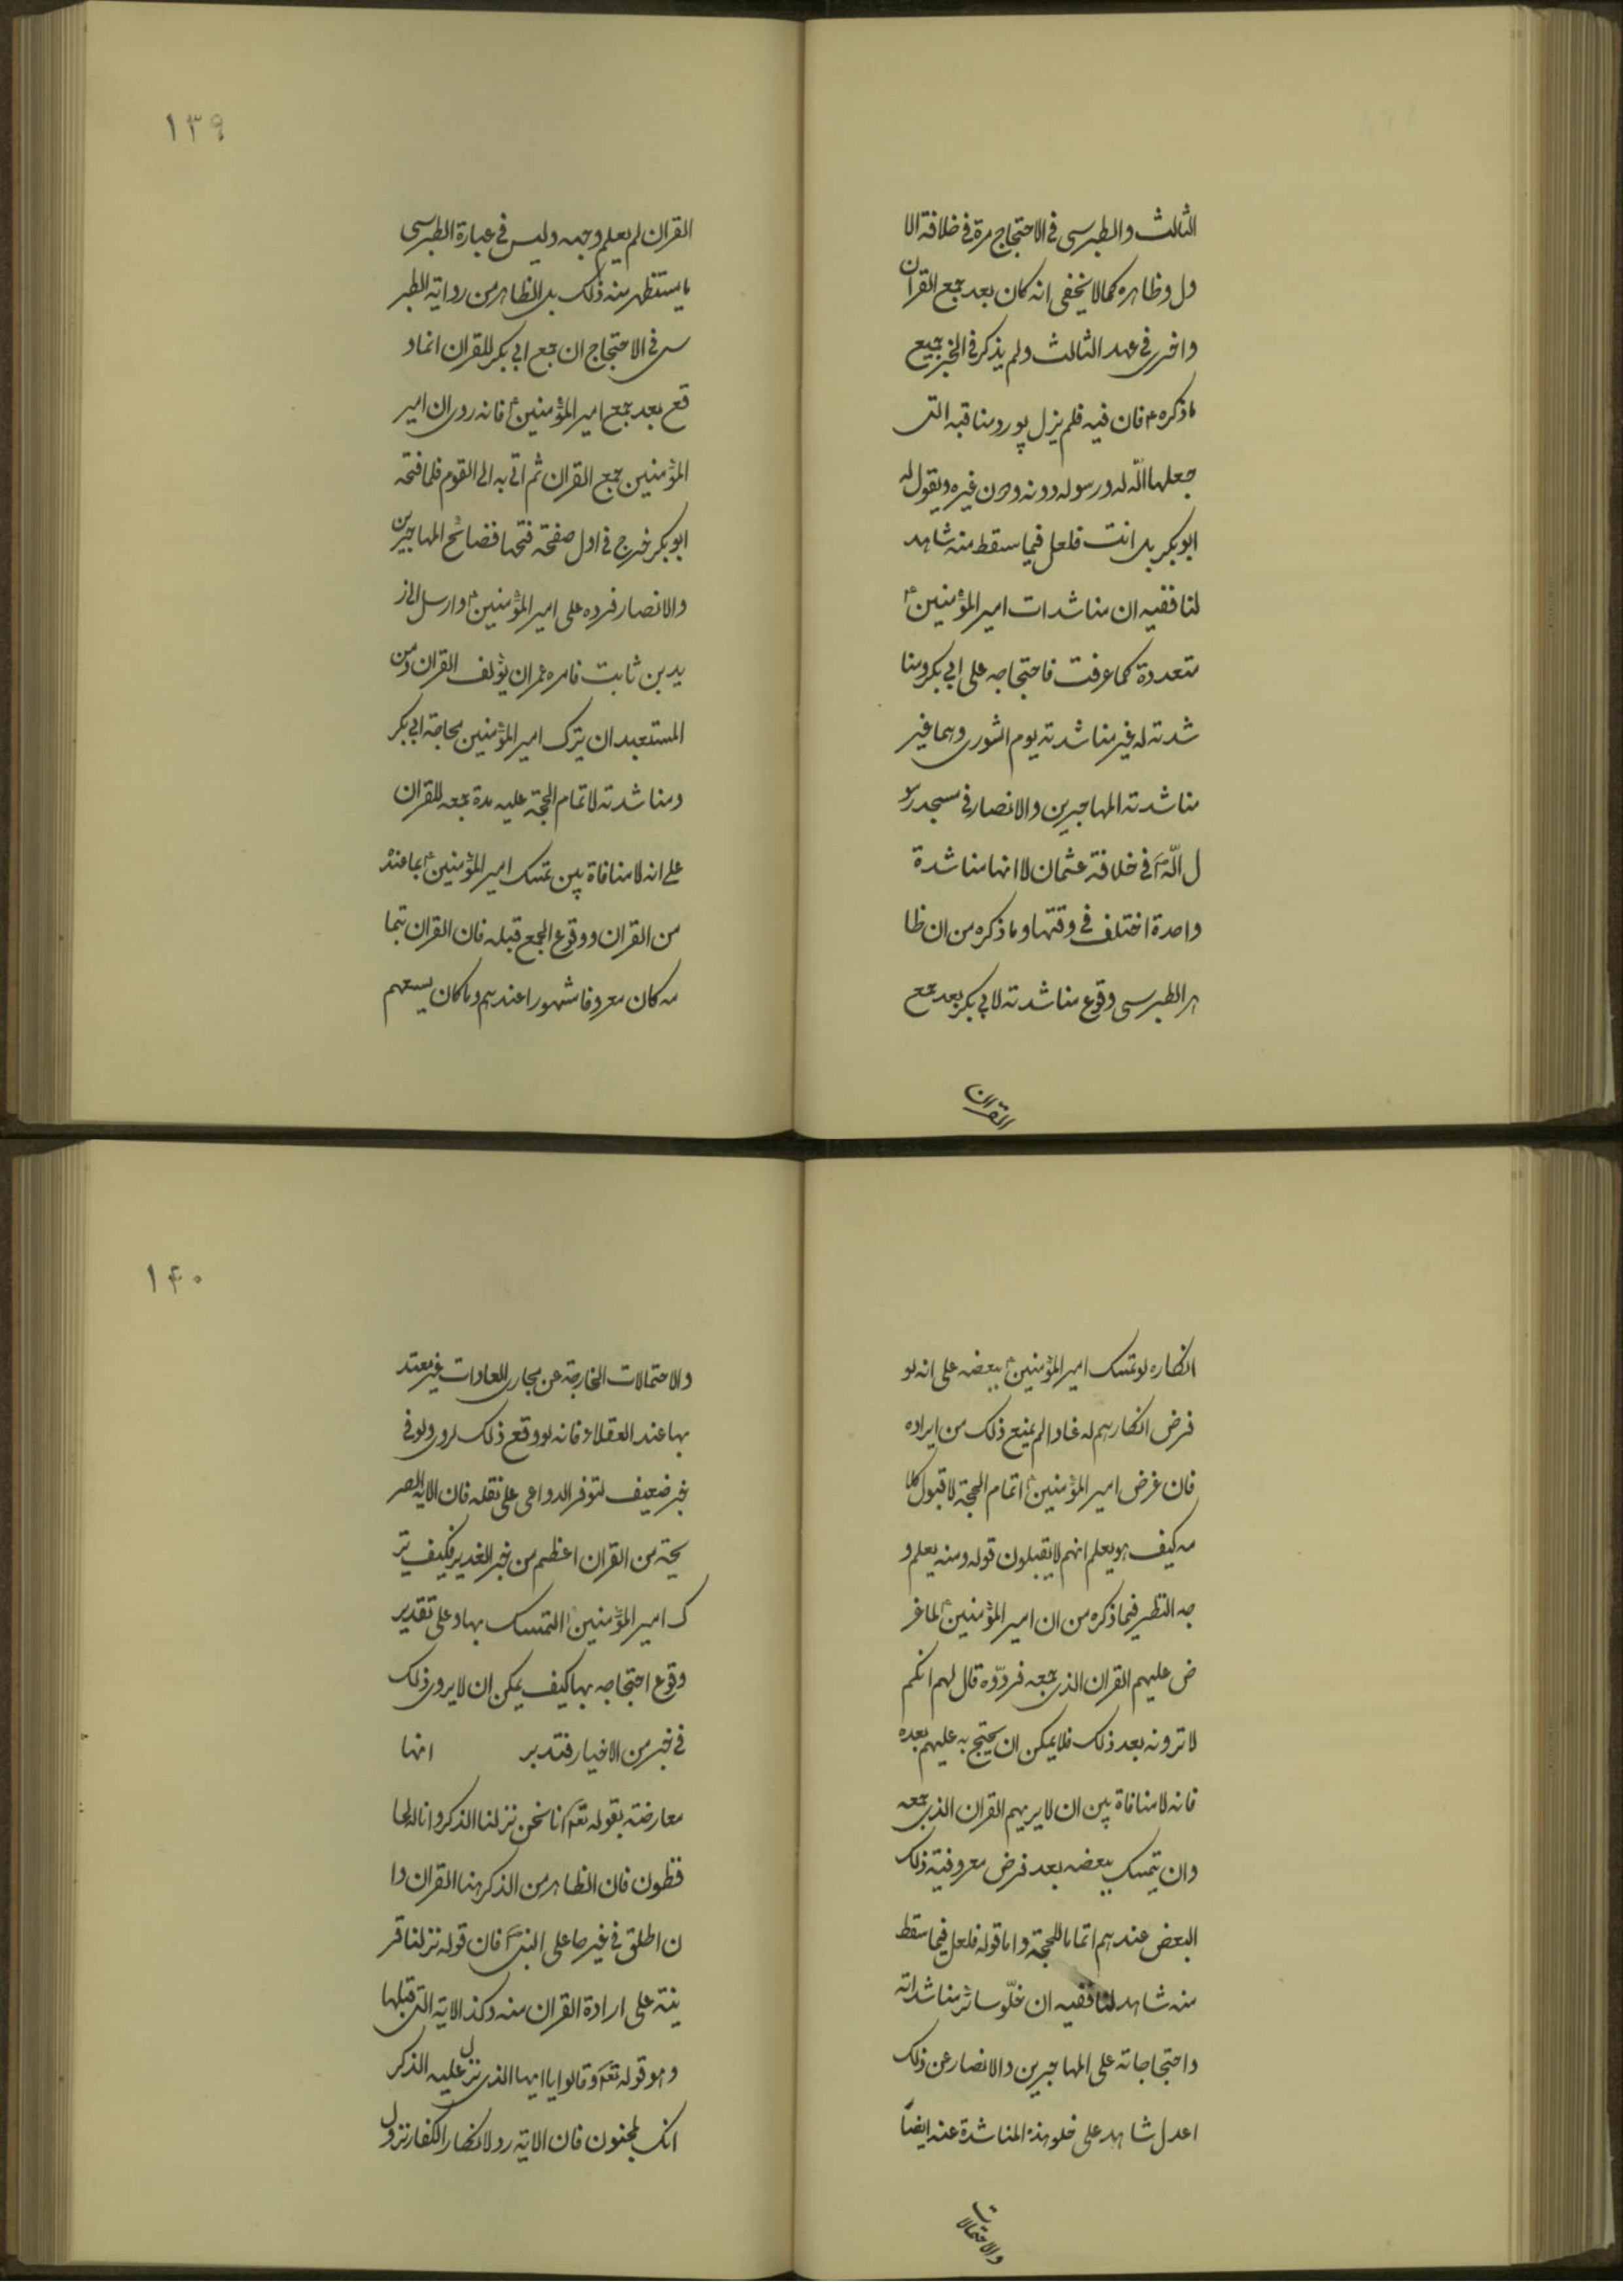 الثالث والطبرسی فی الاحتجاج مرة فی خلافة الا
ول وظاهره کما لا یخفی انه کان بعد جمع القران
واخری فی عهد الثالث ولم یذکر فی الخبر جمیع
ما ذکره ع فان فیه فلم یزل یورد مناقبه التی
جعلها الله له ورسوله دونه ودون غیره ویقول له
ابوبکر بل انت فلعل فیما سقط منه شاهد
لنا ففیه ان مناشدات امیر المؤمنین ع
متعددة کما عرفت فاحتجاجه علی ابی بکر ومنا
شدته له غیر مناشدته یوم الشوری وهما غیر
مناشدته المهاجرین والانصار فی مسجد رسو
ل الله ص فی خلافة عثمان لا انها مناشدة
واحدة اختلف فی وقتها وما ذکره من ان ظا
هر الطبرسی وقوع مناشدته لابی بکر بعد جمع
القران
۱۳۹
القران لم یعلم وجهه ولیس فی عبارة الطبرسی
ما یستظهر منه ذلک بل الظاهر من روایة الطبر
سی فی الاحتجاج ان جمع ابی بکر للقران انما و
قع بعد جمع امیر المؤمنین ع فانه روی ان امیر
المؤمنین جمع القران ثم اتی به الی القوم فلما فتحه
ابوبکر خرج فی اول صفحة فتحها فضائح المهاجرین
والانصار فرده علی امیر المؤمنین ع وارسل الی ز
ید بن ثابت فامره عمر ان یؤلف القران ومن
المستعبد ان یترک امیر المؤمنین محاجة ابی بکر
ومناشدته لاتمام الحجة علیه مدة جمعه للقران
علی انه لا منافاة بین تمسک امیر المؤمنین ع بما عنده
من القران ووقوع الجمع قبله فان القران بتما
مه کان معروفا مشهورا عندهم وما کان یسعهم
انکاره لو تمسک امیر المؤمنین ع ببعضه علی انه لو
فرض انکارهم له عنادا لم یمنع ذلک من ایراده
فان غرض امیر المؤمنین ع اتمام الحجة لا قبول کلا
مه کیف هو یعلم انهم لا یقبلون قوله ومنه یعلم و
جه النظر فیما ذکره من ان امیر المؤمنین ع لما عر
ض علیهم القران الذی جمعه فردّوه قال لهم انکم
لا ترونه بعد ذلک فلا یمکن ان یحتج به علیهم بعده
فانه لا منافاة بین ان لا یریهم القران الذی جمعه
وان یتمسک ببعضه بعد فرض معروفیة ذلک
البعض عندهم اتماما للحجة واما قوله فلعل فیما سقط
منه شاهد لنا ففیه ان خلّو سائر مناشداته
واحتجاجاته علی المهاجرین والانصار عن ذلک
اعدل شاهد علی خلو هذه المناشدة عنه ایضاً
والاحتمالات
۱۴۰
والاحتمالات الخارجة عن مجاری العادات غیر معتد
بها عند العقلاء فانه لو وقع ذلک لروی ولو فی
خبر ضعیف لتوفر الدواعی علی نقله فان الایة الصر
یحة من القران اعظم من خبر الغدیر فکیف تر
ک امیر المؤمنین ع التمسک بها وعلی تقدیر
وقوع احتجاجه بها کیف یمکن ان لا یروی ذلک
فی خبر من الاخبار فتدبر انها
معارضة بقوله تعه انا نحن نزلنا الذکر وانا له لحا
فظون فان الظاهر من الذکر هنا القران وا
ن اطلق فی غیرها علی النبی ص فان قوله نزلنا قر
ینة علی ارادة القران منه وکذا الایة التی قبلها
وهو قوله تعه وقالوا یا ایها الذی نزل علیه الذکر
انک لمجنون فان الایة رد لانکار الکفار نزول